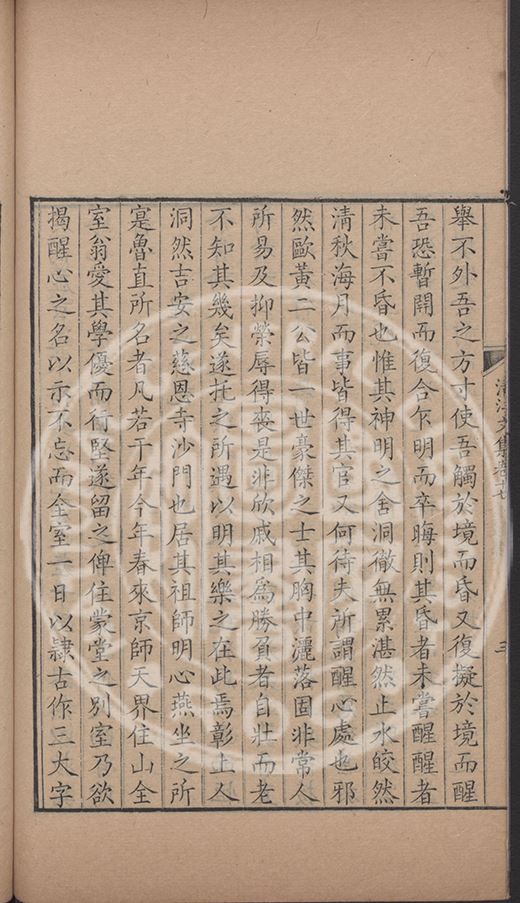 舉不外吾之方寸使吾觸於境而昏又復擬於境而醒
吾恐暫開而復合乍明而卒晦則其昏者未嘗醒醒者
未嘗不昏也惟其神明之舍洞徹無累湛然止水皎然
清秋海月而事皆得其官又何待夫所謂醒心處也邪
然歐黃二公皆一世豪傑之士其胸中灑落固非常人
所易及抑榮辱得喪是非欣戚相爲勝負者自壯而老
不知其幾矣遂托之所遇以明其樂之在此焉彰上人
洞然吉安之慈恩寺沙門也居其祖師明心燕坐之所
寔魯直所名者凡若干年今年春來京師天界住山全
室翁愛其學優而行堅遂留之俾住蒙堂之別室乃欲
揭醒心之名以示不忘而全室一日以隷古作三大字
文集卷七
三